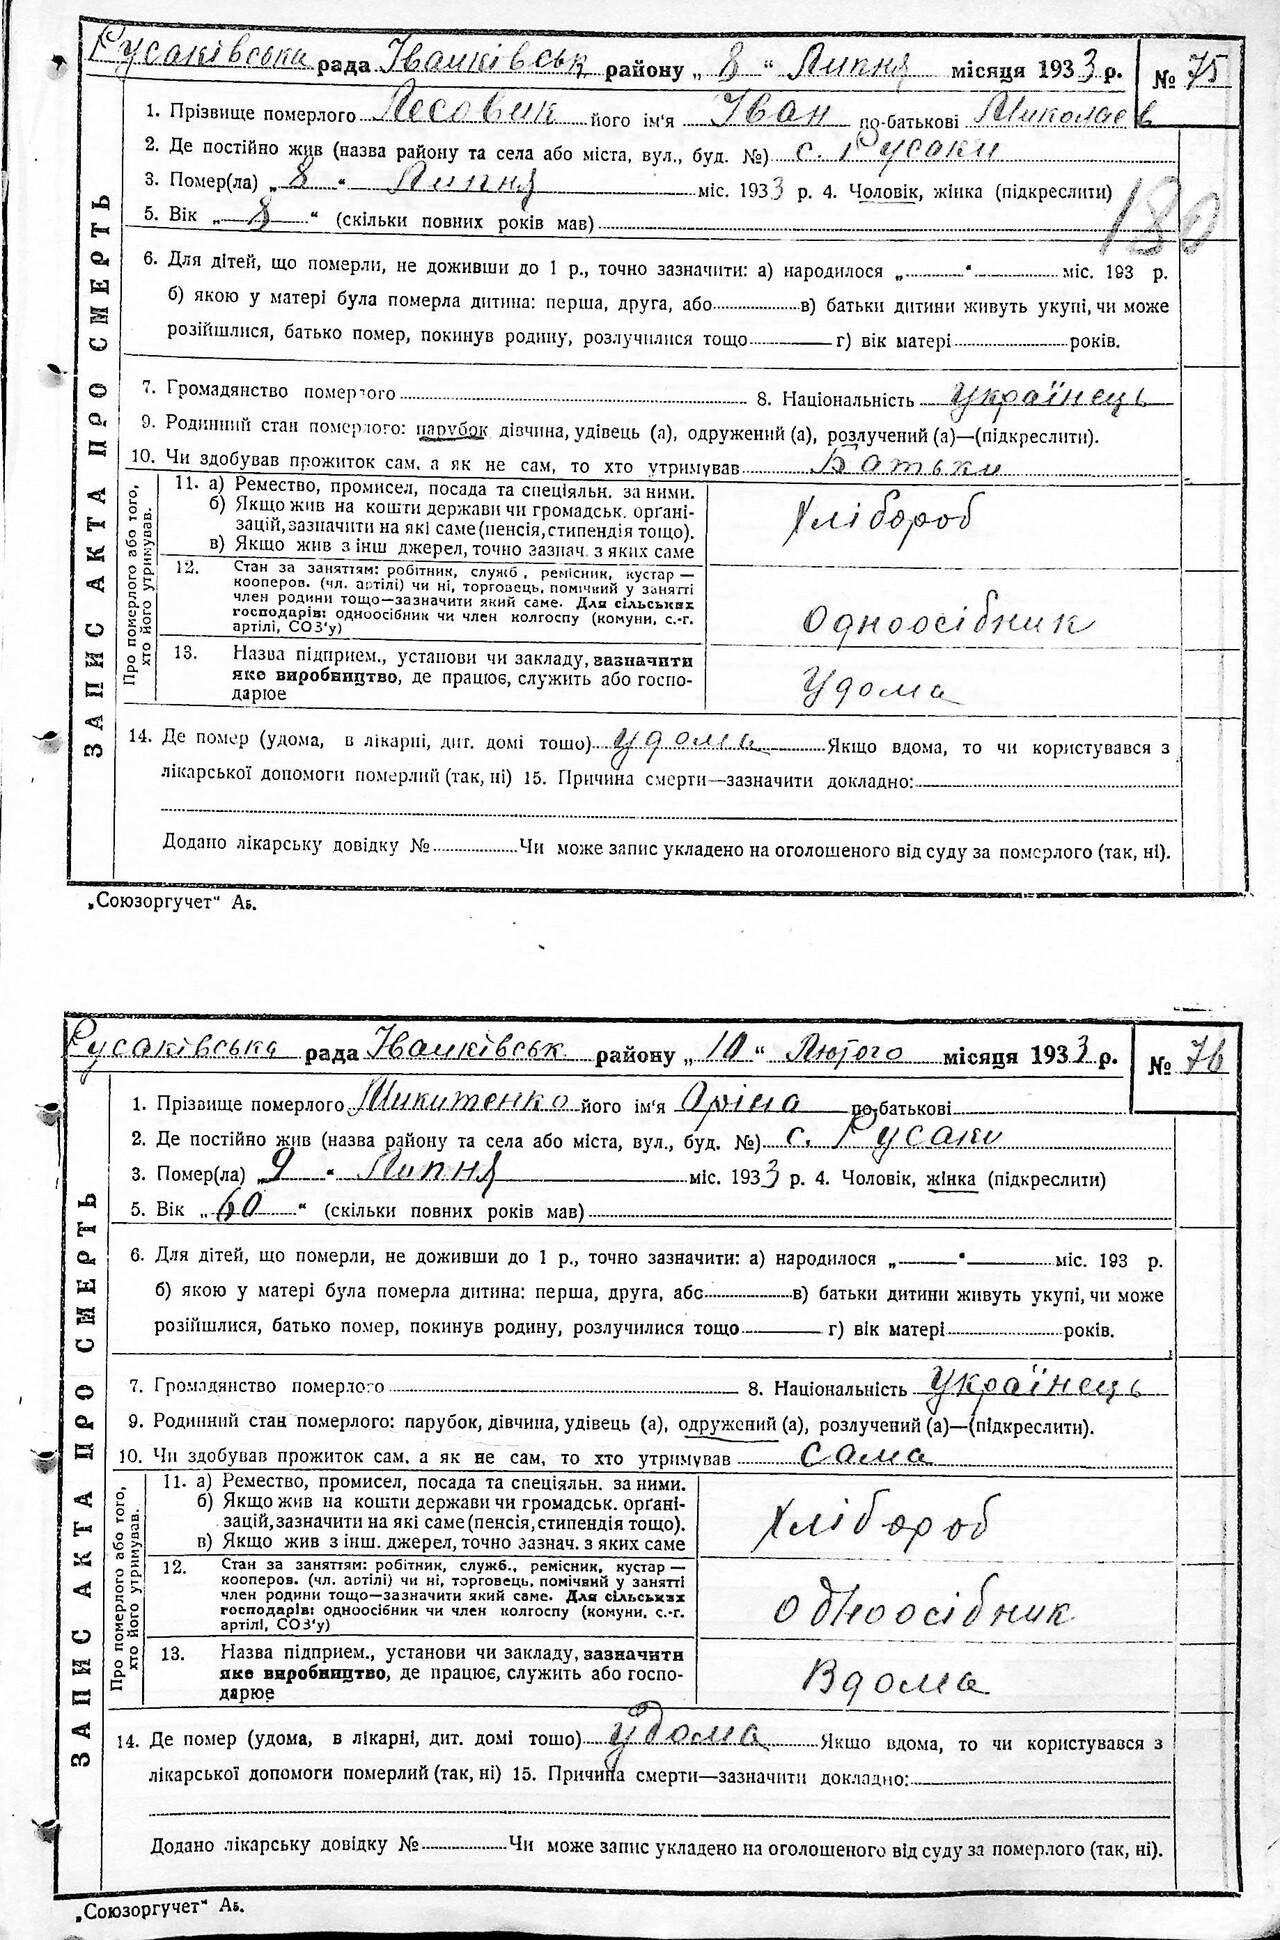 Русаківська рада Іванківськ району „ 8 “ Липня місяця 1933 р. № 75
1. Прізвище померлого Лесовик його ім'я Іван по-батькові Миколаєв
2. Де постійно жив (назва району та села або міста, вул., буд. №) с. Русаки
3. Помер(ла) „ 8 “ Липня міс. 1933 р. 4. Чоловік, жінка (підкреслити)
180
5. Вік „ 8 “ (скільки повних років мав)
6. Для дітей, що померли, не доживши до 1 р., точно зазначити: а) народилося „ “ міс. 193 р.
б) якою у матері була померла дитина: перша, друга, або в) батьки дитини живуть укупі, чи може
розійшлися, батько помер, покинув родину, розлучилися тощо г) вік матері років.
7. Громадянство померлого 8. Національність Українець
9. Родинний стан померлого: парубок дівчина, удівець (а), одружений (а), розлучений (а)—(підкреслити).
10. Чи здобував прожиток сам, а як не сам, то хто утримував Батьки
ЗАПИС АКТА ПРО СМЕРТЬ
Про померлого або того, хто його утримував.
11. а) Ремество, промисел, посада та спеціяльн. за ними.
б) Якщо жив на кошти держави чи громадськ. орґані-
зацій, зазначити на які саме (пенсія, стипендія тощо).
в) Якщо жив з інш джерел, точно зазнач. з яких саме
Хлібороб
12. Стан за заняттям: робітник, служб, ремісник, кустар —
кооперов. (чл. артілі) чи ні, торговець, помічний у занятті
член родини тощо—зазначити який саме. Для сільських
господарів: одноосібник чи член колгоспу (комуни, с.-г.
артілі, СОЗ'у)
Одноосібник
13. Назва підприєм., установи чи закладу, зазначити
яке виробництво, де працює, служить або госпо-
дарює
Удома
14. Де помер (удома, в лікарні, дит. домі тощо) удома Якщо вдома, то чи користувався з
лікарської допомоги померлий (так, ні) 15. Причина смерти—зазначити докладно:
Додано лікарську довідку № Чи може запис укладено на оголошеного від суду за померлого (так, ні).
„Союзоргучет“ Аб.
Русаківська рада Іванківськ. району „ 10 “ Лютого місяця 1933 р. № 76
1. Прізвище померлого Микитенко його ім'я Оріна по-батькові
2. Де постійно жив (назва району та села або міста, вул., буд. №) с. Русаки
3. Помер(ла) „ 9 “ Липня міс. 1933 р. 4. Чоловік, жінка (підкреслити)
5. Вік „ 60 “ (скільки повних років мав)
6. Для дітей, що померли, не доживши до 1 р., точно зазначити: а) народилося „ “ міс. 193 р.
б) якою у матері була померла дитина: перша, друга, або в) батьки дитини живуть укупі, чи може
розійшлися, батько помер, покинув родину, розлучилися тощо г) вік матері років.
7. Громадянство померлого 8. Національність Українець
9. Родинний стан померлого: парубок, дівчина, удівець (а), одружений (а), розлучений (а)—(підкреслити).
10. Чи здобував прожиток сам, а як не сам, то хто утримував сама
ЗАПИС АКТА ПРО СМЕРТЬ
Про померлого або того, хто його утримував.
11. а) Ремество, промисел, посада та спеціяльн. за ними.
б) Якщо жив на кошти держави чи громадськ. орґані-
зацій, зазначити на які саме (пенсія, стипендія тощо).
в) Якщо жив з інш. джерел, точно зазнач. з яких саме
Хлібороб
12. Стан за заняттям: робітник, служб., ремісник, кустар —
кооперов. (чл. артілі) чи ні, торговець, помічний у занятті
член родини тощо—зазначити який саме. Для сільських
господарів: одноосібник чи член колгоспу (комуни, с.-г.
артілі, СОЗ'у)
одноосібник
13. Назва підприєм., установи чи закладу, зазначити
яке виробництво, де працює, служить або госпо-
дарює
Вдома
14. Де помер (удома, в лікарні, дит. домі тощо) удома Якшо вдома, то чи користувався з
лікарської допомоги померлий (так, ні) 15. Причина смерти—зазначити докладно:
Додано лікарську довідку № Чи може запис укладено на оголошеного від суду за померлого (так, ні).
„Союзоргучет“ Аб.